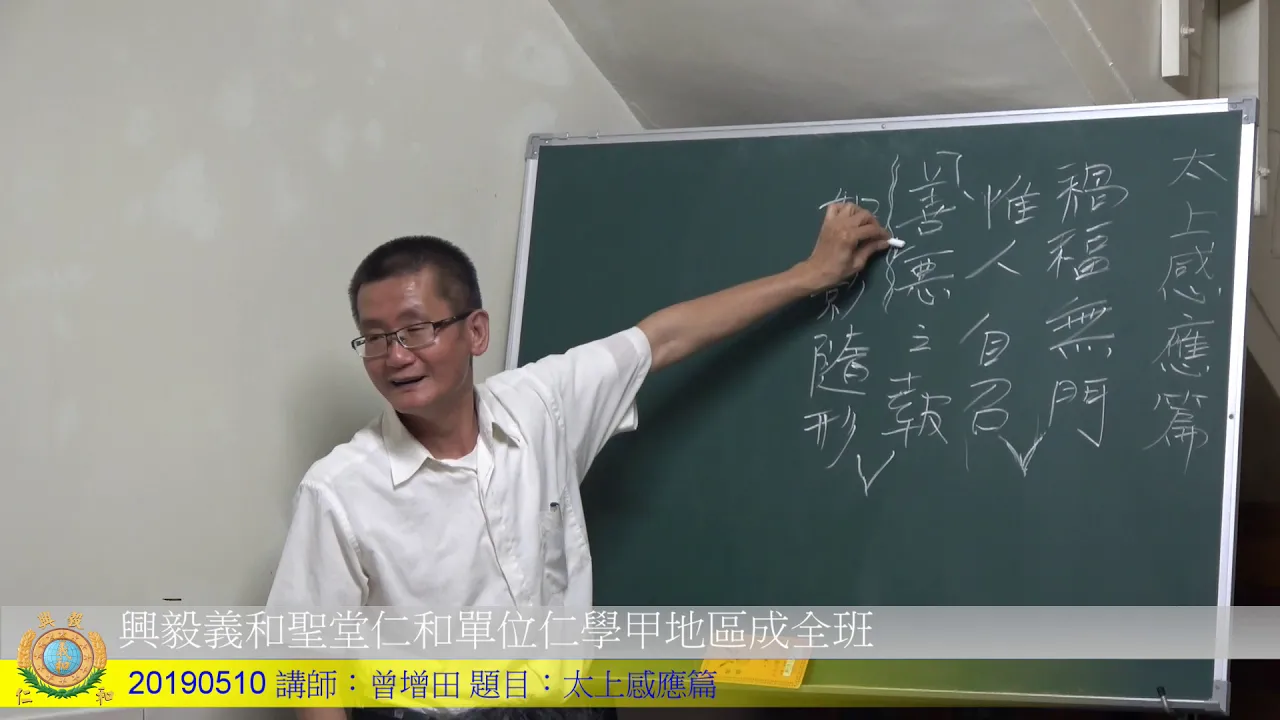 太上感應篇
禍福無門
惟人自召
善惡之報
影隨形
興毅義和聖堂仁和單位仁學甲地區成全班
20190510 講師：曾增田 題目：太上感應篇
興毅
義和
仁和